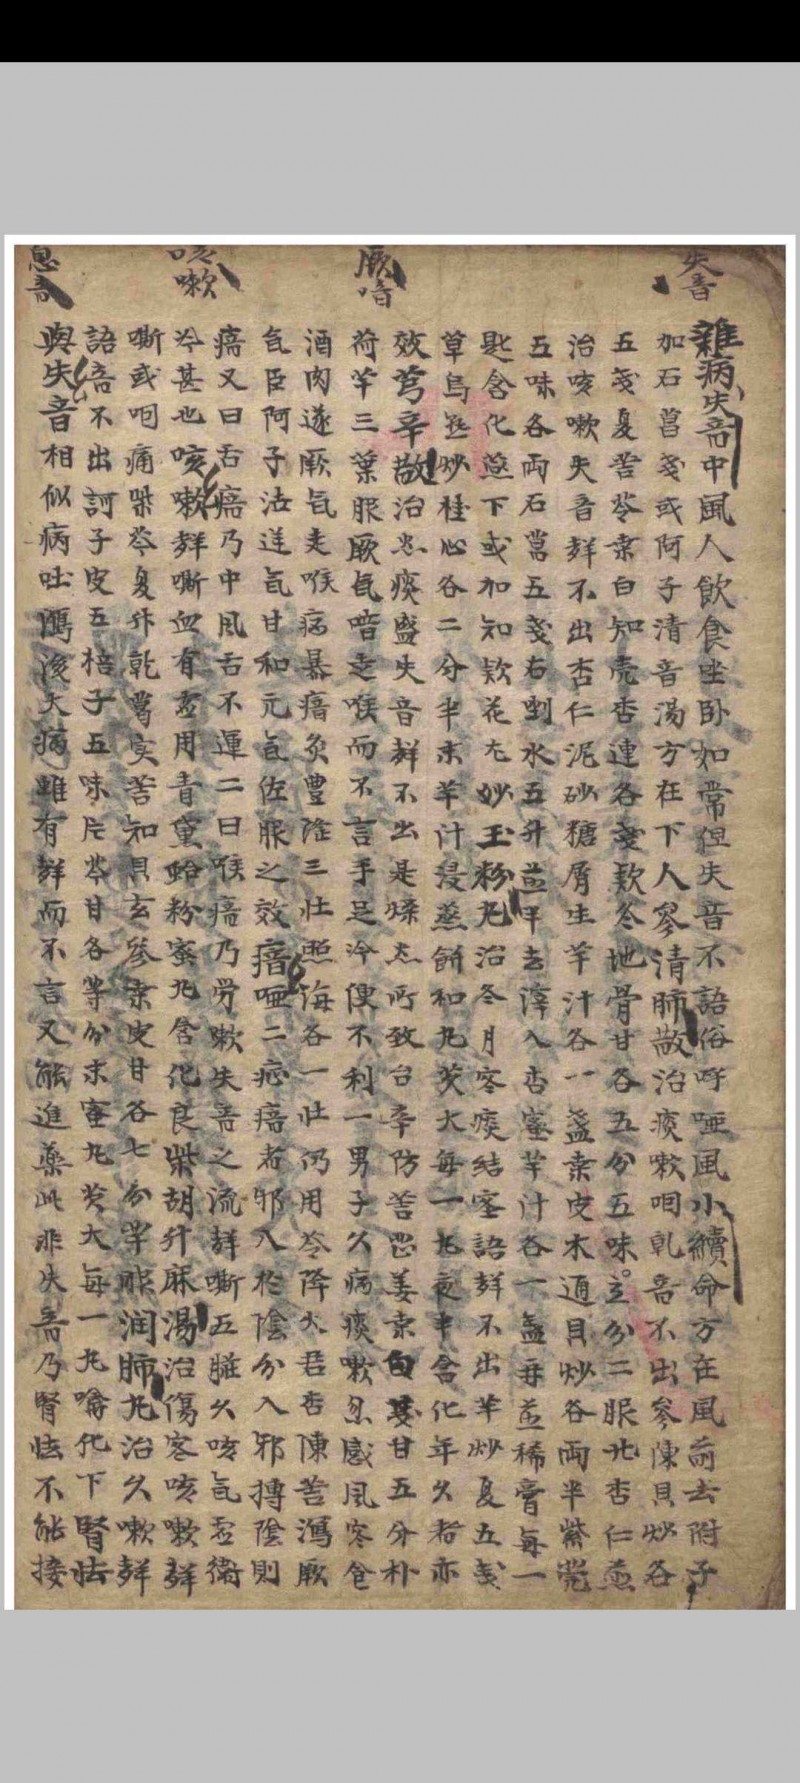 失音
厥喑
咳嗽
息音
雜病失音中風人飲食坐卧如常但失音不語俗呼啞風小續命方在風前去附子
加石菖戔或阿子清音湯方在下人參清肺散治痰嗽咽乾音不出參陳貝炒各
五戔夏苦芩桑白知壳杏連各戔欵冬地骨甘各五分五味立分二服北杏仁煎
治咳嗽失音声不出杏仁泥砂糖屑生羊汁各一盞桑皮木通貝炒各兩半紫菀
五味各兩石菖五戔右剉水五升煎半去滓入杏蜜羊汁各一盞再煎稀膏每一
匙含化嚥下或加知欵花尤妙玉粉丸治冬月寒痰結塞語声不出羊炒夏五戔
草烏炒桂心各二分半末羊汁浸蒸餅和丸芡大每一丸夜半含化年久者亦
效芎辛散治忽痰盛失音声不出是燥所致台辛防苦思姜桒白戔甘五分朴
荷羊三葉服厥氣喑走喉而不言手足冷便不利一男子久病痰嗽忽感風寒食
酒肉遂厥気走喉病暴瘖灸豊隆三壮照海各一壮仍用芩降火君杏陳苦瀉厥
気臣阿子治逆氣甘和元気佐服之效瘖啞二症瘖者邪入於陰分入邪摶陰則
瘖又曰舌瘖乃中風舌不運二曰喉瘖乃勞嗽失音之流声嘶五臟久咳気衛
冷甚也咳嗽声嘶血有用青黛蛤粉蜜丸含化良柴胡升麻湯治傷寒咳嗽声
嘶或咽痛柴芩夏升乾葛实苦知貝玄參桒皮甘各七分羊服润肺丸治久嗽声
語音不出訶子皮五棓子五味片芩甘各等分末蜜丸芡大每一丸噙化下腎怯
與失音相似病吐瀉後大病雖有声而不言又能進藥此非失音乃腎怯不能接